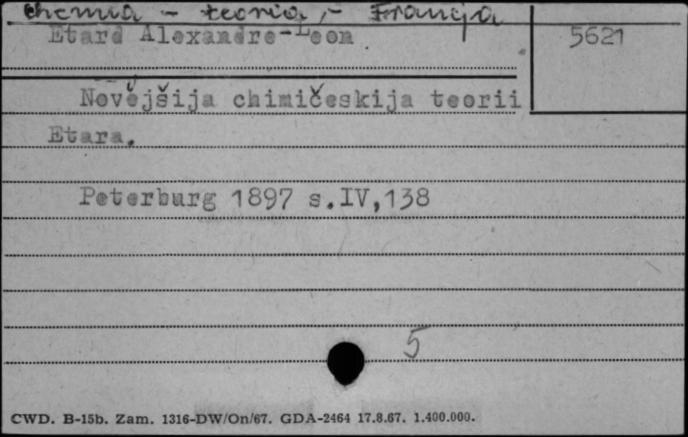 Chemia - teoria, - Francja
Etard Alexandre-Leon
5621
Novějšija chimičeskija teorii
Etara.
Peterburg 1897 s.IV,138
5
CWD. B-15b. Zam. 1316-DW/On/67. GDA-2464 17.8.67. 1.400.000.